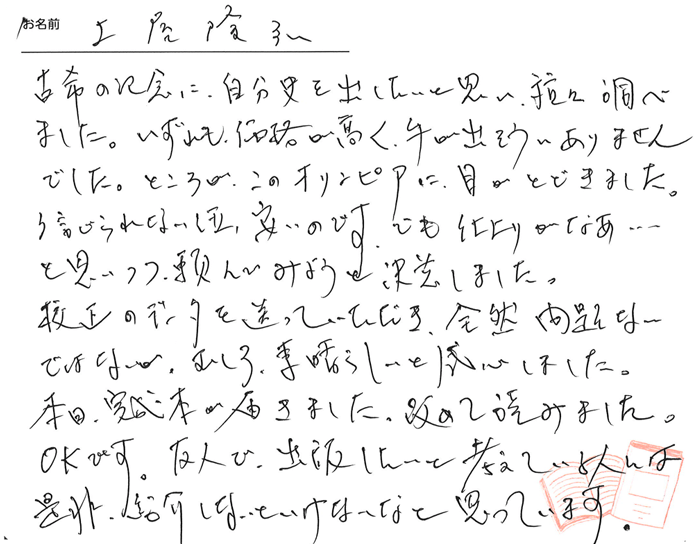 お名前 上原隆弘
古希の記念に、自分史を出したいと思い、種々調べ
ました。いずれも、価格が高く、手が出そうにありません
でした。ところが、このオリンピアに、目がとどきました。
信じられない位、安いのです。でも仕上りがなあ…
と思いつつ、頼んでみようと決意しました。
校正のデータを送っていただき、全然問題ない
ではないか。むしろ、素晴らしいと感心しました。
本日、完成本が届きました。改めて読みました。
OKです。友人で、出版したいと考えている人には
是非、紹介しないといけないなと思っています。